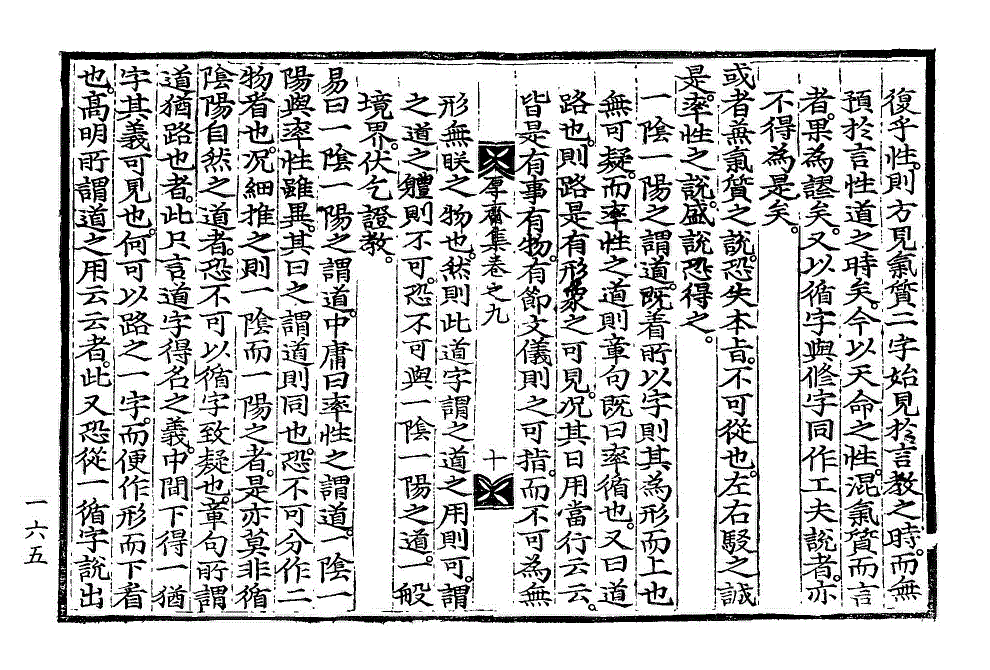 復乎性則方見氣質二字始見於言敎之時而無
預於言性道之時矣今以天命之性混氣質而言
者果爲謬矣又以循字與修字同作工夫說者亦
不得為是矣
或者無氣質之說恐失本旨不可從也左右駁之誠
是率性之說盛說恐得之
一陰一陽之謂道旣着所以字則其為形而上也
無可疑而率性之道則章句旣曰率循也又曰道
路也則路是有形象之可見况其日用當行云云
皆是有事有物有節文儀則之可指而不可為無
厚齋集卷之九 十
形無眹之物也然則此道字謂之道之用則可謂
之道之軆則不可恐不可與一陰一陽之道一般
境界伏乞證敎
易曰一陰一陽之謂道中庸曰率性之謂道一陰一
陽與率性雖異其曰之謂道則同也恐不可分作二
物者也况細推之則一陰而一陽之者是亦莫非循
陰陽自然之道者恐不可以循字致疑也章句所謂
道猶路也者此只言道字得名之義中間下得一猶
字其義可見也何可以路之一字而便作形而下看
也高明所謂道之用云云者此又恐從一循字說出
一六五